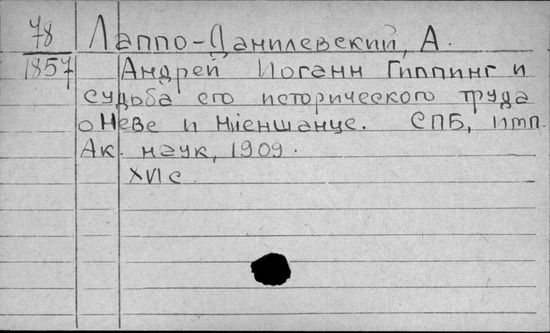 78 Лаппо-Данилевский, А.
1857 Андрей Иоганн Гиппинг и
судьба его исторического труда
о Неве и Ниеншанце. СПБ, итп.
Ак. наук, 1909.
XVI с.